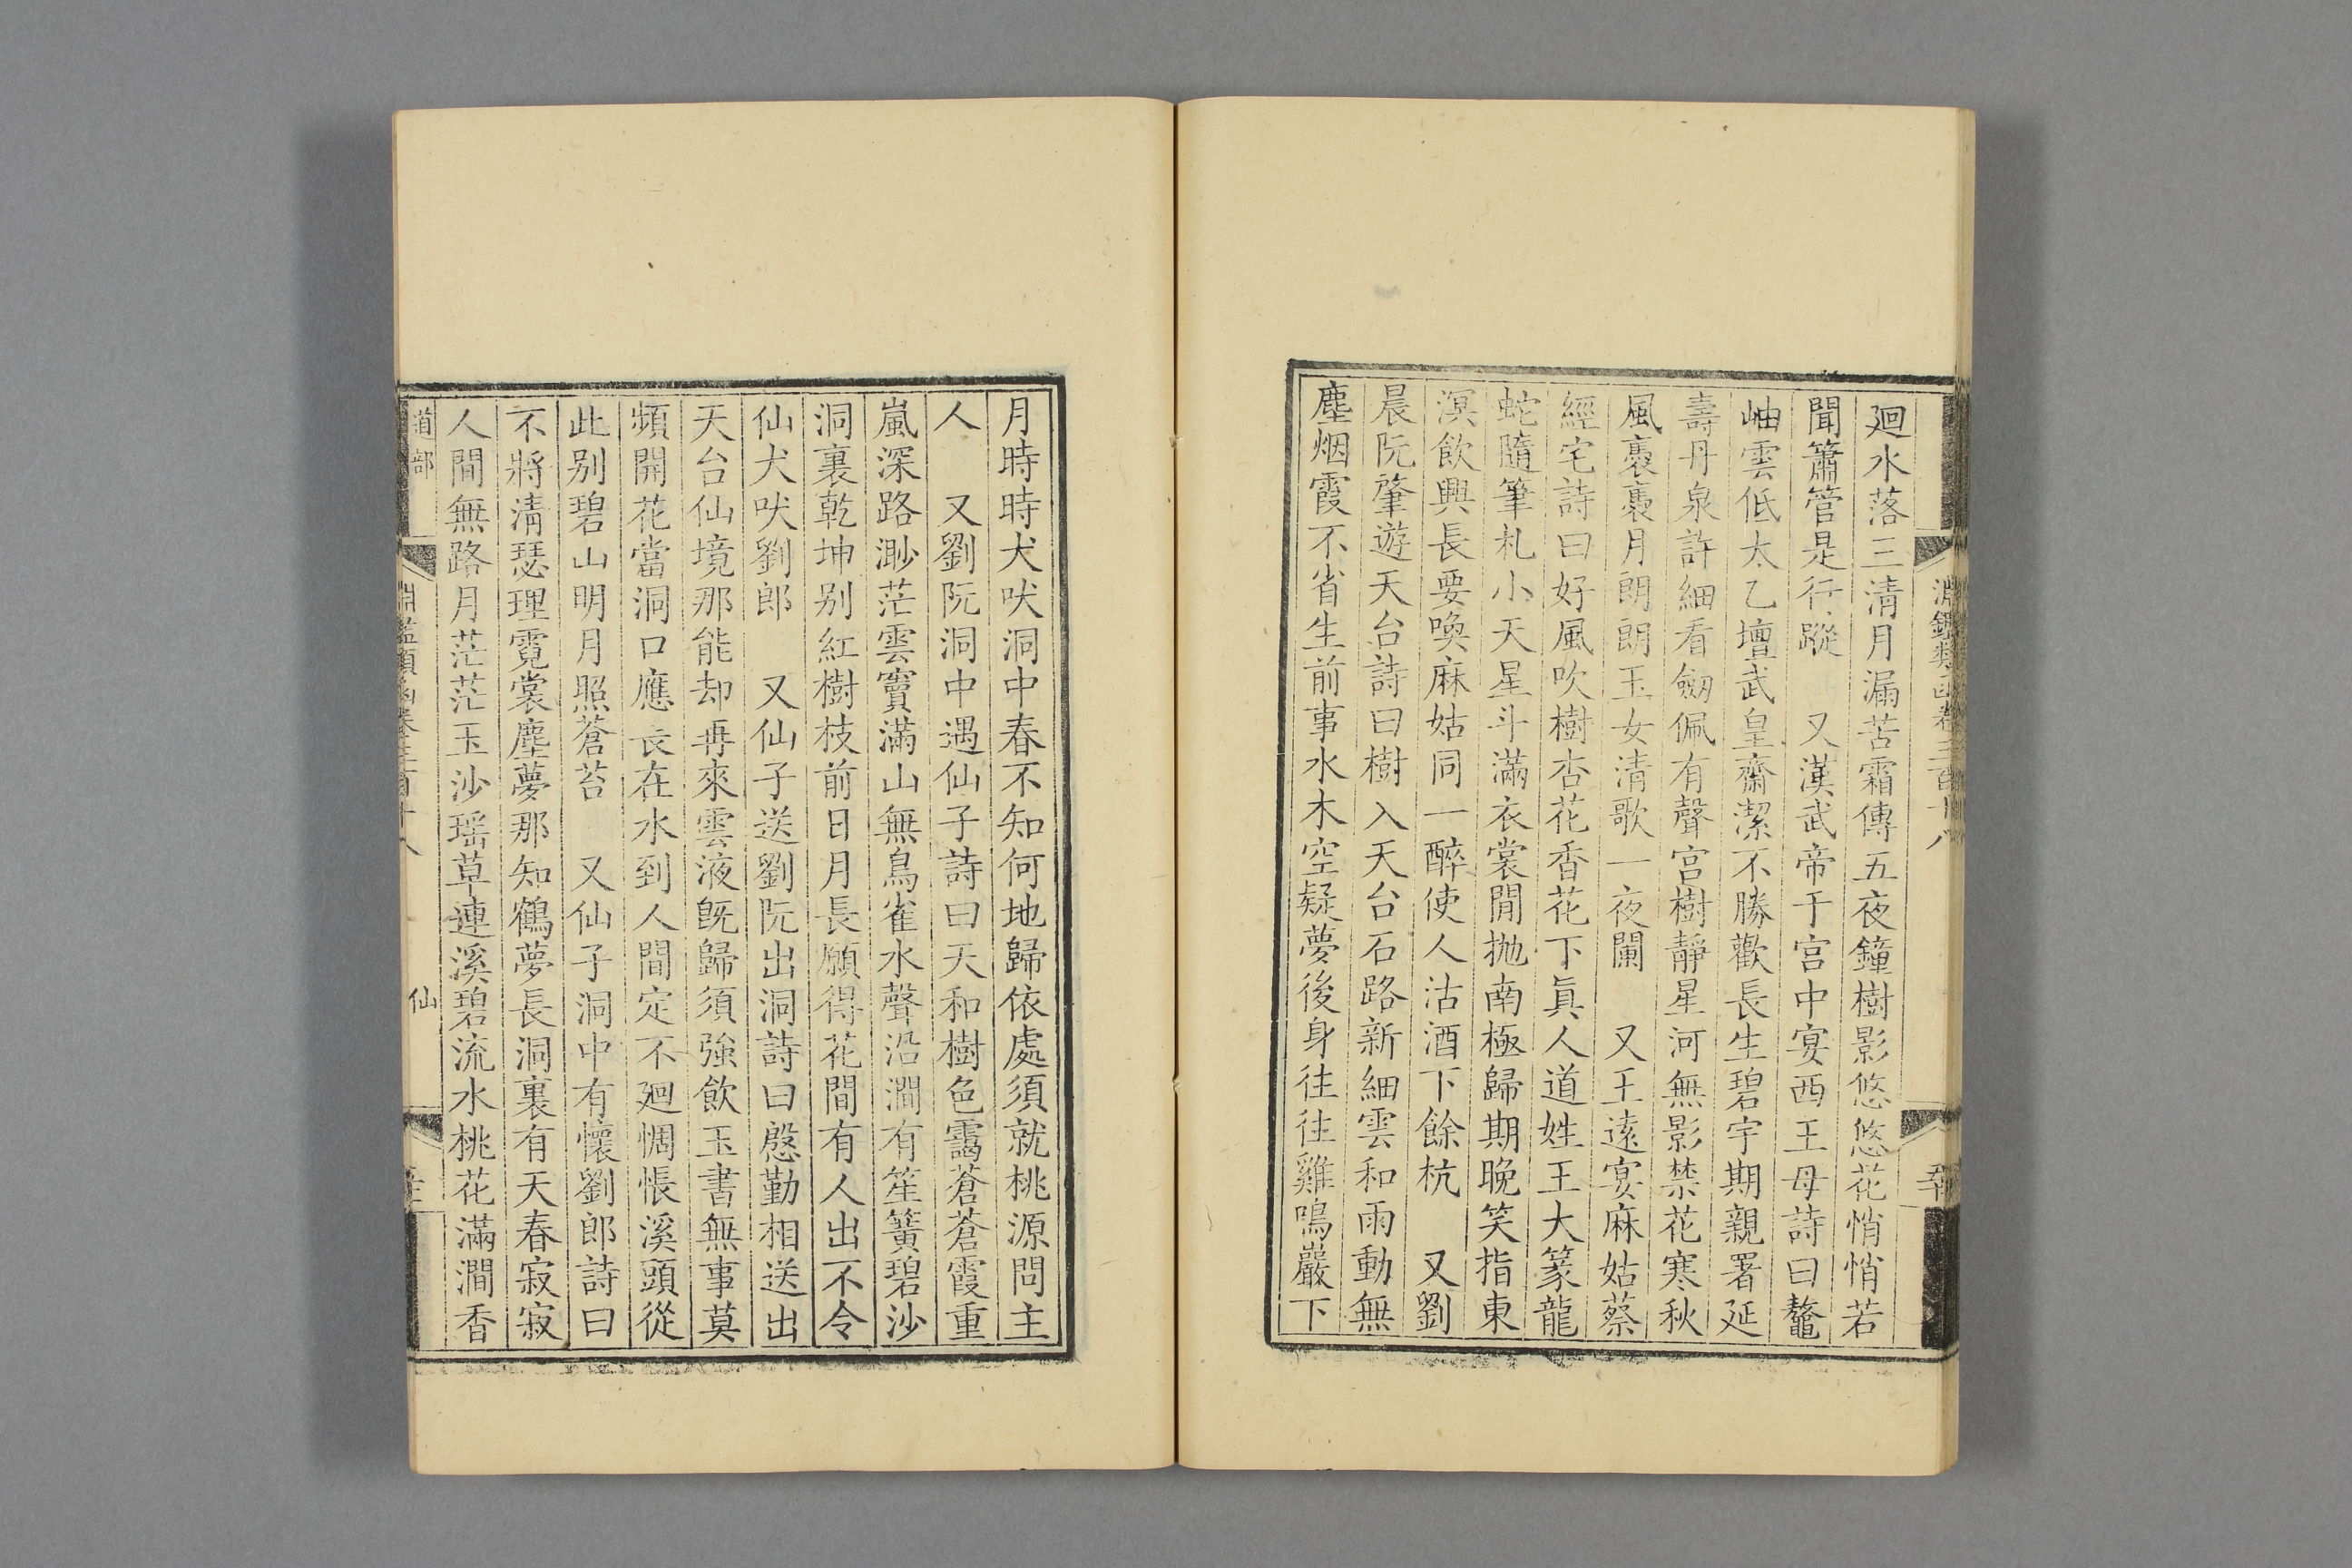 廻水落三清月漏苦霜傳五夜鐘樹影悠悠花悄悄若
聞簫管是行蹤 又漢武帝于宫中宴西王母詩曰鼇
岫雲低太乙壇武皇齋潔不勝歡長生碧宇期親署延
壽丹泉許細看劒佩有聲宮樹靜星河無影禁花寒秋
風裊裊月朗朗玉女清歌一夜闌 又王遠宴麻姑蔡
經宅詩曰好風吹樹杏花香花下眞人道姓王大篆龍
蛇隨筆札小天星斗滿衣裳閒抛南極歸期晚笑指東
溟飲興長要喚麻姑同一醉使人沽酒下餘杭 又劉
晨阮肇遊天台詩曰樹入天台石路新細雲和雨動無
塵烟霞不省生前事水木空疑夢後身往往雞鳴巖下
月時時犬吠洞中春不知何地歸依處須就桃源問主
人 又劉阮洞中遇仙子詩曰天和樹色靄蒼蒼霞重
嵐深路渺茫雲竇滿山無鳥雀水聲沿澗有笙簧碧沙
洞裏乾坤别紅樹枝前日月長願得花間有人出不令
仙犬吠劉郎 又仙子送劉阮出洞詩曰慇勤相送出
天台仙境那能却再來雲液旣歸須強飲玉書無事莫
頻開花當洞口應長在水到人間定不廻惆悵溪頭從
此别碧山明月照蒼苔 又仙子洞中有懷劉郎詩曰
不將清瑟理霓裳塵夢那知鶴夢長洞裏有天春寂寂
人間無路月茫茫玉沙瑶草連溪碧流水桃花滿澗香
道部
仙